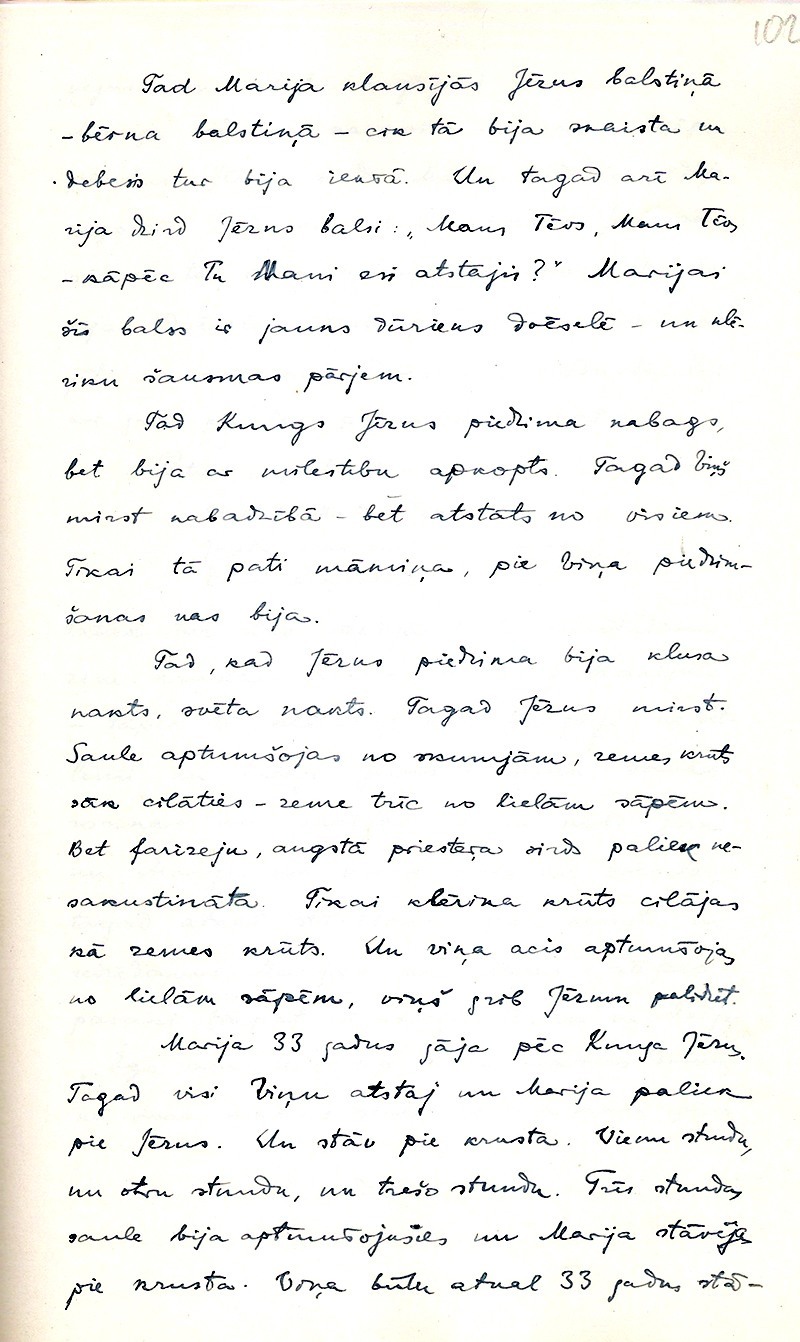 102
Tad Marija klausījās Jēzus balstiņā
- bērna balstiņā - cik tā bija skaista un
debesis tur bija iekšā. Un tagad arī Ma-
rija dzird Jēzus balsi: „Mans Tēvs, Mans Tēvs
- kāpēc Tu Mani esi atstājis?" Marijai
šīs balss ir jauns dūriens dvēselē - un klē-
riku šausmas pārjem.
Tad Kungs Jēzus piedzima nabags,
bet bija ar mīlestību apkopts. Tagad Viņš
mirst nabadzībā - bet atstāts no visiem.
Tikai tā pati māmiņa, pie Viņa piedzim-
šanas kas bija.
Tad, kad Jēzus piedzima bija klusa
nakts, svēta nakts. Tagad Jēzus mirst.
Saule aptumšojas no skumjām, zemes krūts
sāk cilāties - zeme trīc no lielām sāpēm.
Bet farizeju, augstā priestera sirds paliek ne-
sakustināta. Tikai klērika krūts cilājas
kā zemes krūts. Un viņa acis aptumšojas
no lielām sāpēm, viņš grib Jēzum palīdzēt.
Marija 33 gadus gāja pēc Kunga Jēzus.
Tagad visi Viņu atstāj un Marija paliek
pie Jēzus. Un stāv pie krusta. Vienu stundu,
un otru stundu, un trešo stundu. Trīs stundas
saule bija aptumšojusies un Marija stāvēja
pie krusta. Viņa būtu atkal 33 gadus stā-